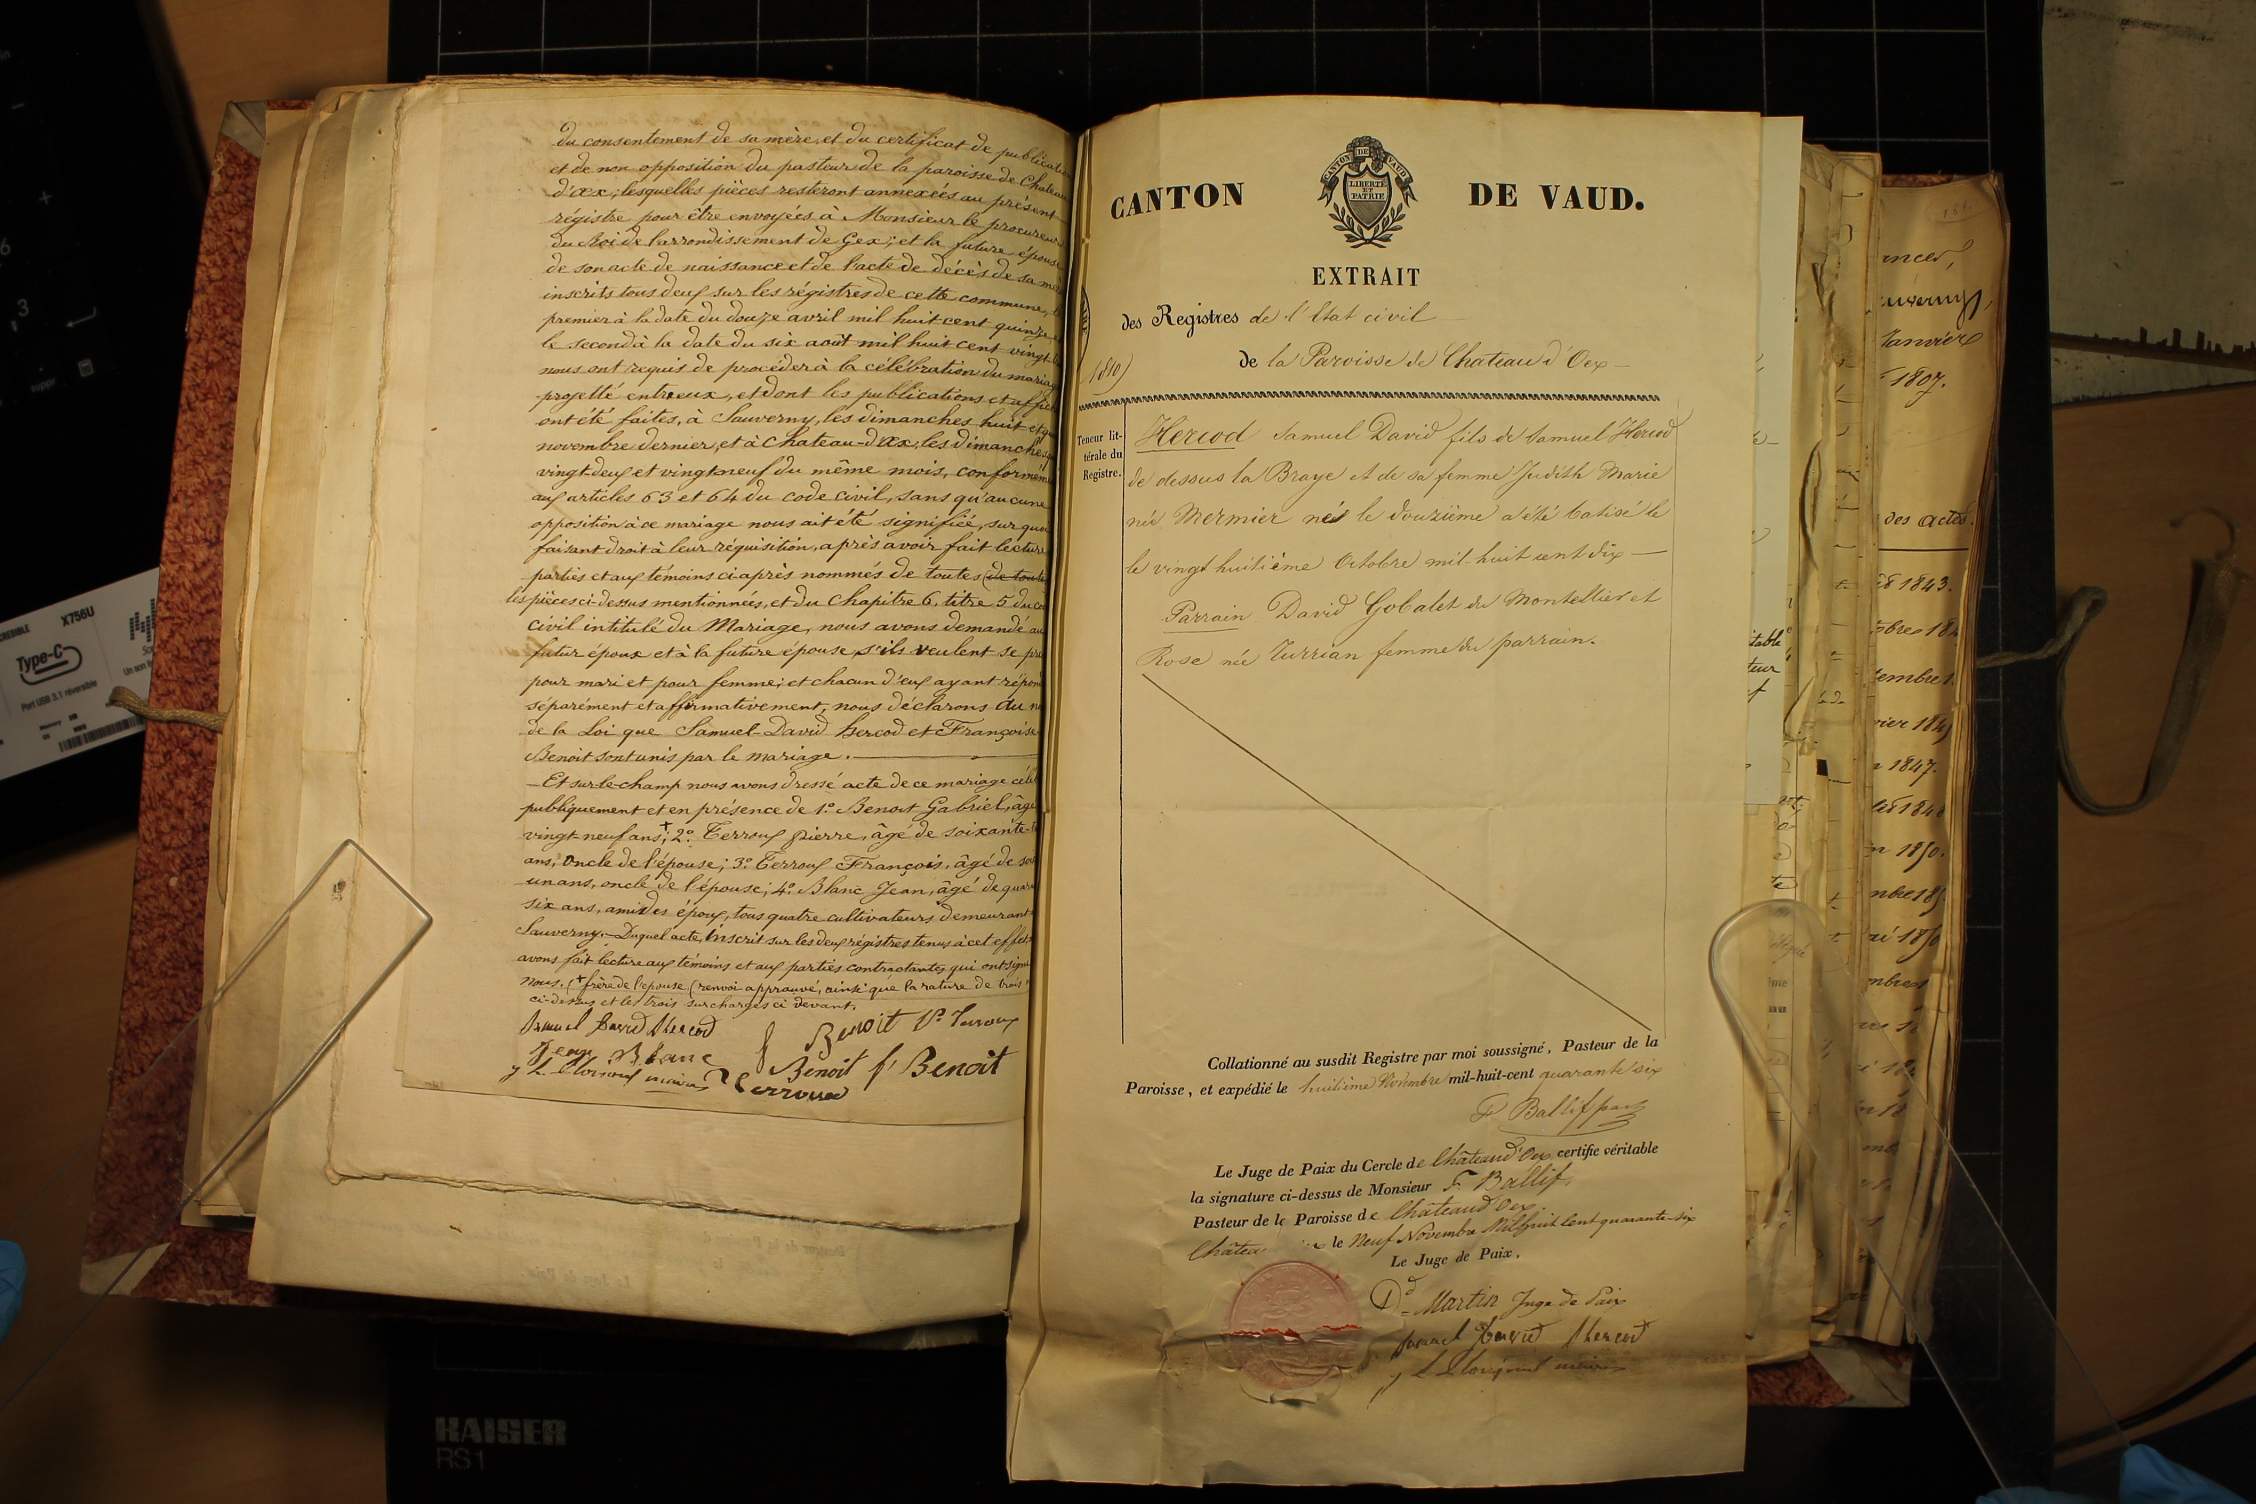 du consentement de sa mère, et du certificat de publication
et de non opposition du pasteur de la paroisse de Chateau
d'Œx; lesquelles pièces resteront annexées au présent
régistre pour être envoyées à Monsieur le procureur
du Roi de l'arrondissement de Gex; et la future épouse
de son acte de naissance et de l'acte de décès de sa
inscrits tous deux sur les régistres de cette commune,
premier à la date du douze avril mil huit cent quinze,
le second à la date du six août mil huit cent vingt
nous ont requis de procéder à la célébration du mariage
projetté entr'eux, et dont les publications et
ont été faites, à Sauverny, les dimanches huit et
novembre dernier, et à Chateau-d'Œx, les dimanches
vingt-deux et vingt neuf du même mois, conformém
aux articles 63 et 64 du code civil, sans qu'aucune
opposition à ce mariage nous ait été signifiée, sur quoi
faisant droit à leur réquisition, après avoir fait lecture
parties et aux témoins ci-après nommés de toutes (de toutes
les pièces ci-dessus mentionnées, et du Chapitre 6, titre 5 du
civil intitulé du Mariage, nous avons demandé au
futur époux et à la future épouse s'ils veulent se
pour mari et pour femme; et chacun d'eux ayant répon
séparément et affirmativement, nous déclarons du
de la Loi que Samuel-David hercod et Françoise
Benoit sont unis par le mariage.
Et sur-le-champ nous avons dressé acte de ce mariage
publiquement et en présence de 1º Benoit Gabriel, âgé
vingt-neuf ans +; 2º Terroux pierre, âgé de soixante-
ans, oncle de l'épouse; 3º Terroux François, âgé de
un ans, oncle de l'épouse; 4º Blanc Jean, âgé de
six ans, ami des époux, tous quatre cultivateurs, demeurant
Sauverny. Duquel acte, inscrit sur les deux régistres tenus à cet effet
avons fait lecture aux témoins et aux parties contractantes qui ont signé
nous. (+ frère de l'épouse (renvoi approuvé, ainsi que la rature de trois
ci-dessus et les trois surcharges ci devant.
Samuel David Hercod Benoit Pre Terroux
Jean Blanc Benoit fs Benoit
maire Terroux
CANTON DE VAUD.
CANTON DE VAUD
LIBERTÉ
ET
PATRIE
EXTRAIT
des Registres de l'Etat civil
de la Paroisse de Chateau d'Oex
1810)
Teneur lit-
térale du
Registre.
Hercod Samuel David fils de Samuel Hercod
de dessus la Braye et de sa femme Judith Marie
née Mermier nés le douzième a été batisé le
le vingt huitième Octobre mil-huit cent dix
Parrain David Gobalet du Montellier et
Rose née Turrian femme du parrain.
Collationné au susdit Registre par moi soussigné, Pasteur de la
Paroisse, et expédié le huitième Novembre mil-huit-cent quarante six
F. Ballif past
Le Juge de Paix du Cercle de Château d'Oex certifie véritable
la signature ci-dessus de Monsieur F. Ballif,
Pasteur de la Paroisse de Château d'Oex.
Châteaud le Neuf Novembre Mil huit Cent quarante-six
Le Juge de Paix,
Dd Martin Juge de Paix
Samuel David Hercod
maire
1807.
des actes.
1843.
1847.
1850.
KAISER
RS1
Type-C
X756U
Port USB 3.1 réversible
suppr
3
6